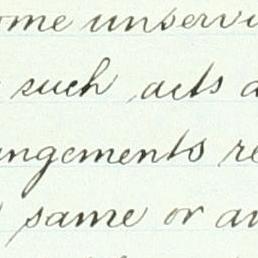 ome unservi
such acts a
ngements re
same or av